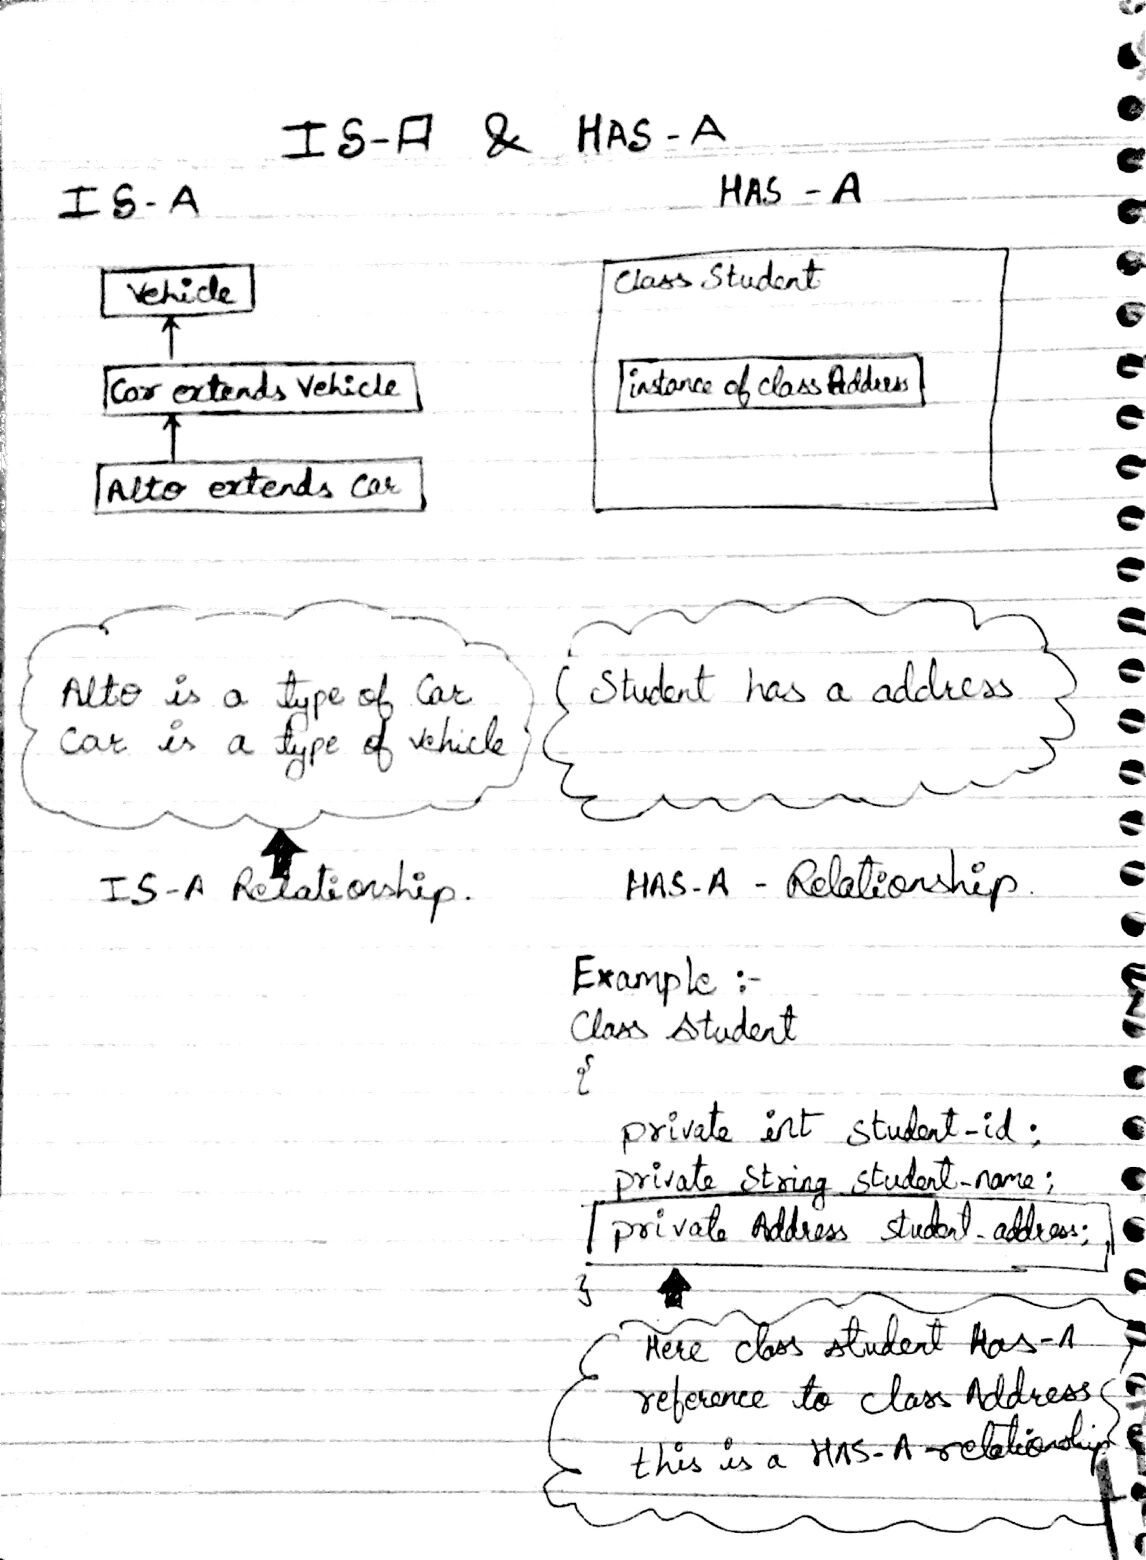 IS-A & HAS-A
IS-A
Vehicle
Car extends Vehicle
Alto extends Car
Alto is a type of Car
Car is a type of vehicle
IS-A Relationship.
HAS-A
Class Student
instance of class Address
Student has a address
HAS-A - Relationship.
Example :-
Class Student
{
private int student-id;
private String student-name;
private Address student-address;
}
Here class student Has-A
reference to class Address
this is a HAS-A-relationship